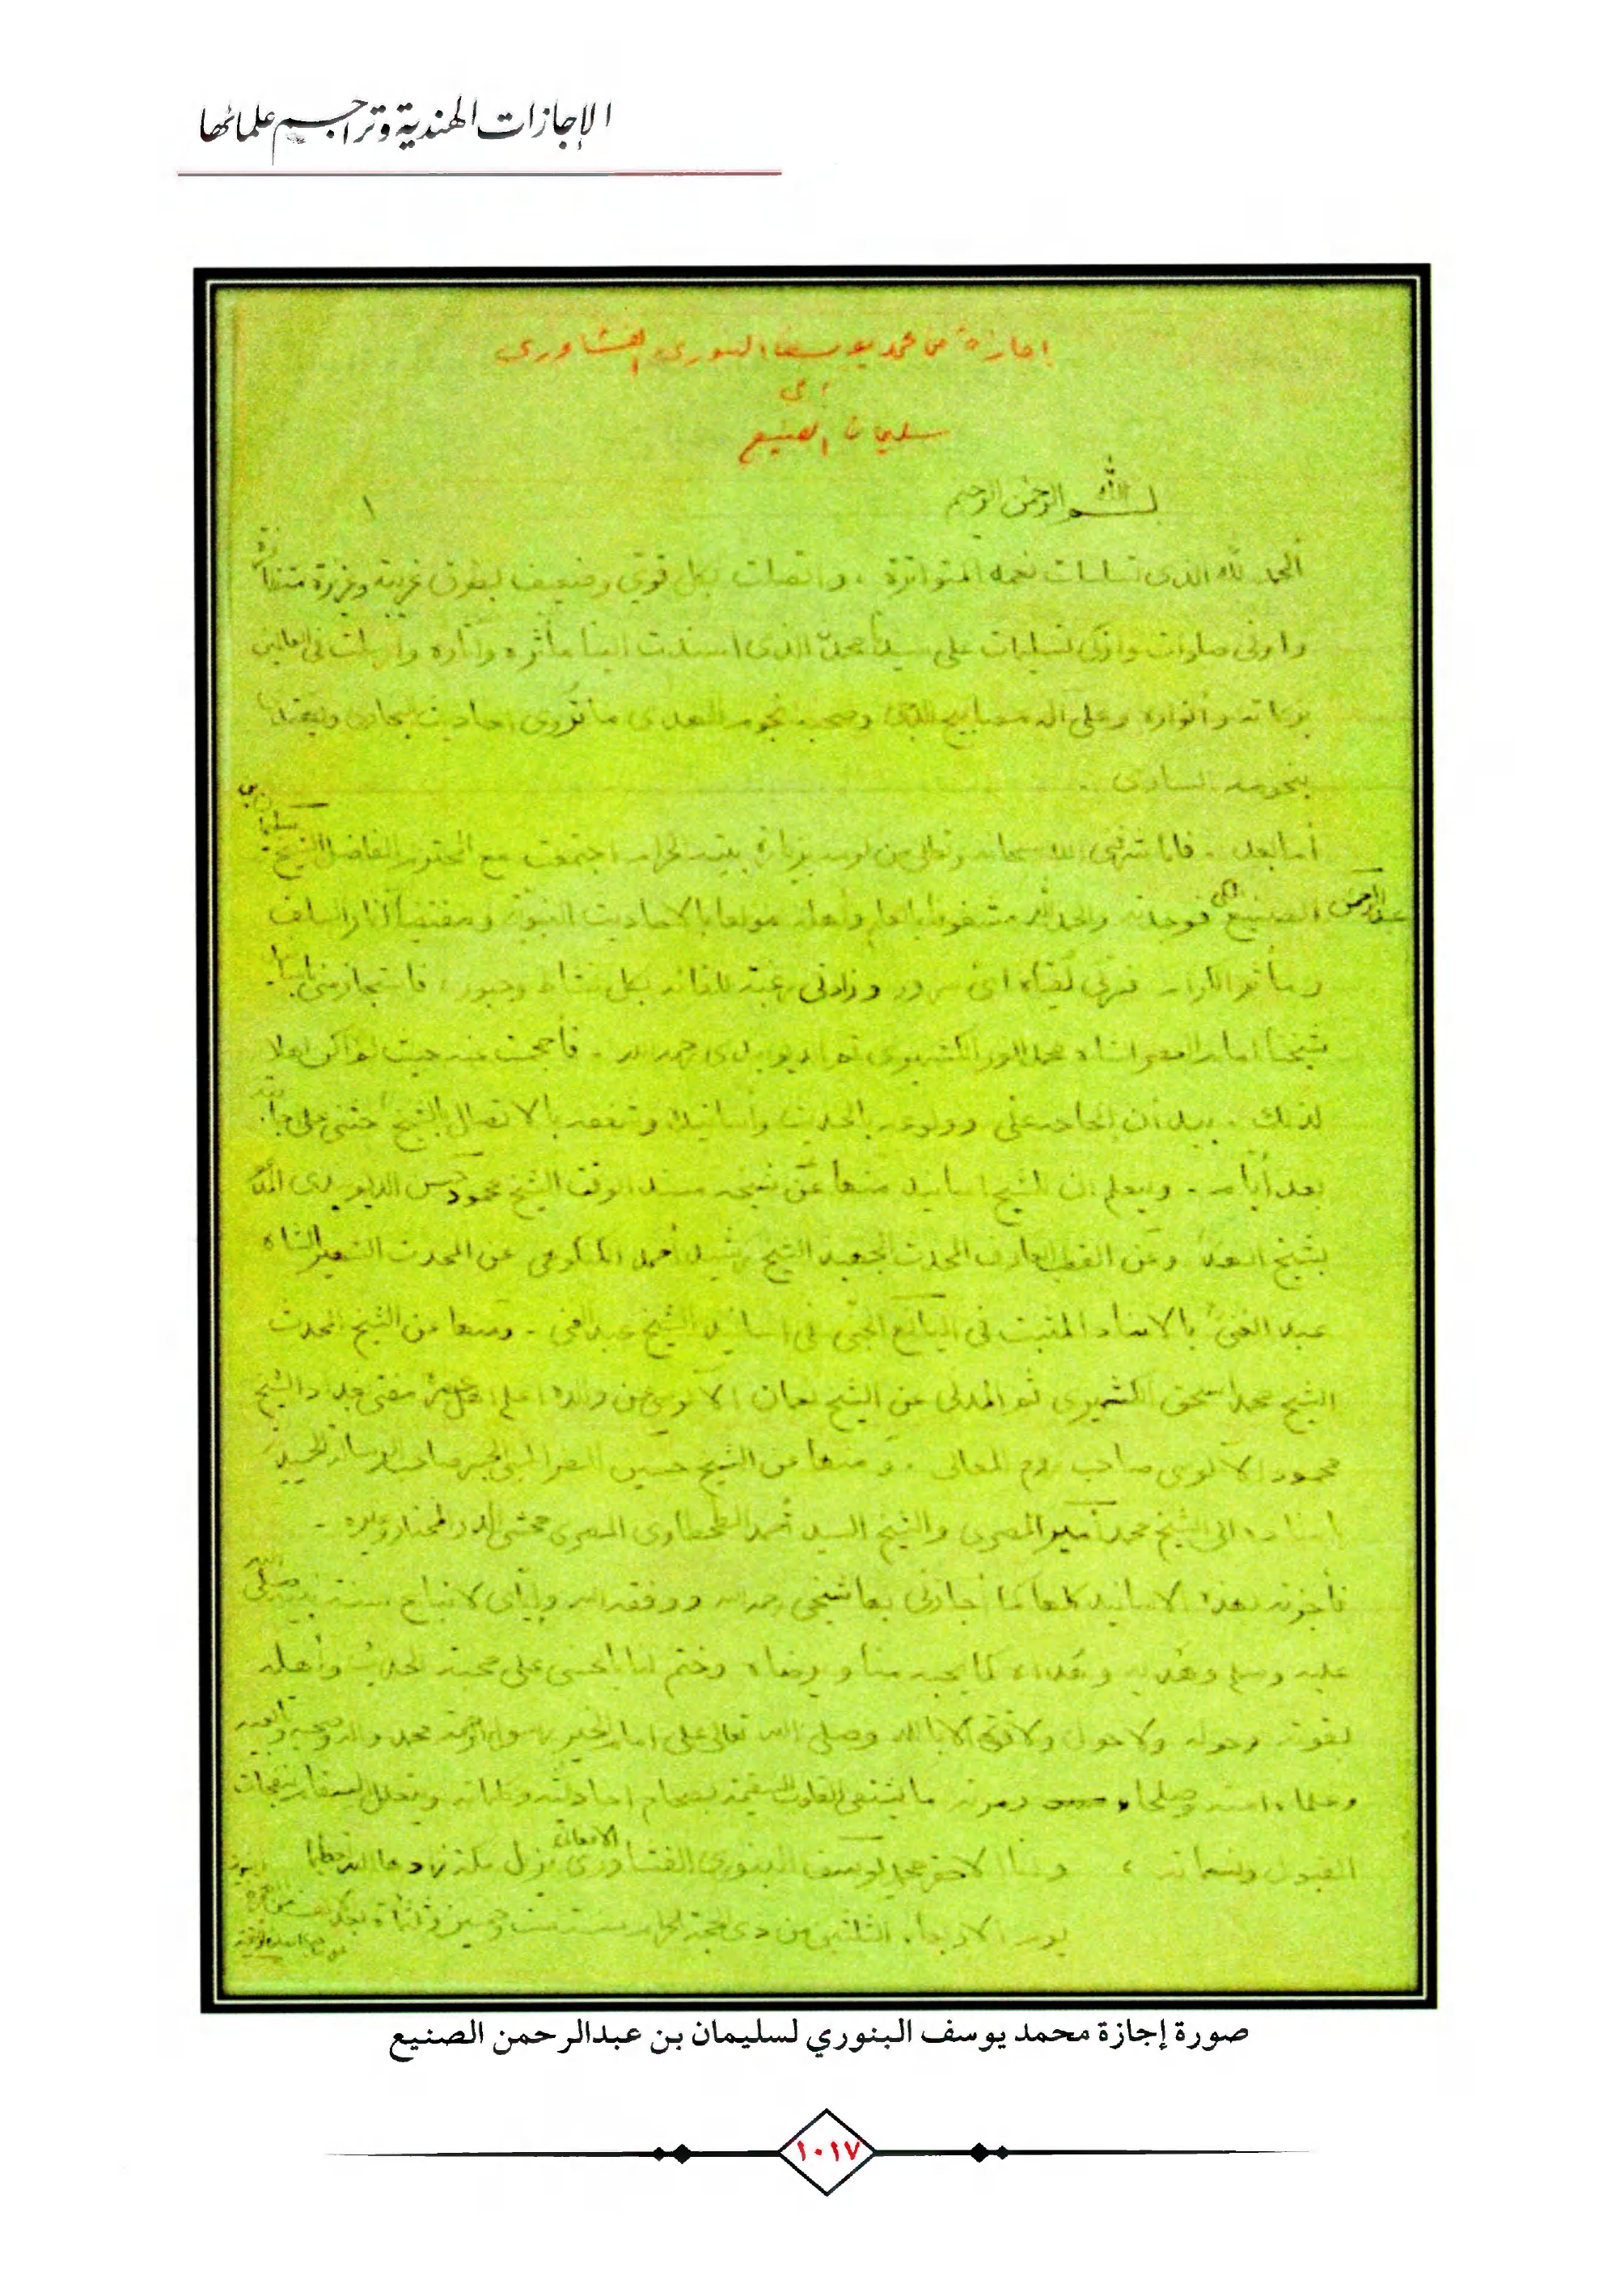 الإجازات الهندية وتراجم علمائها
إجازة من محمد يوسف البنوري الفشاوري
إلى
سليمان الصنيع
بسم الله الرحمن الرحيم
١
الحمد لله الذي تسلسلت نعمه المتواترة، واتصلت بكل قوي وضعيف بطرق غريبة وعزيزة
وأوفى صلوات وأزكى تسليمات على سيدنا محمد الذي أسندت إلينا مآثره وآثاره وأرسلت في العالمين
بركاته وأنواره وعلى آله مصابيح الدجى وصحبه نجوم الهدى ما تُروى أحاديث البخاري
بنجومه الساري.
أما بعد. فلما شرفني الله سبحانه وتعالى بزيارة بيته الحرام اجتمعت مع المحترم الفاضل الشيخ سليمان بن
عبد الرحمن الصنيع المكي فوجدته والحمد لله مشغوفا بالعلم وأهله مولعا بالأحاديث النبوية ومقتفيا آثار السلف
لقياه أي سرور وزادني رغبة للقائه بكل نشاط وحبور، فاستجازمني
شيخنا إمام العصر الشاه محمد أنور الكشميري ثم الديوبندي رحمه الله. فأحجمت عنه حيث لم أكن أهلا
لذلك. بيد أن إلحاحه علي وولوعه بالحديث وأسانيده وشغفه بالاتصال بالشيخ حثني على
بعد أيام. وليعلم أن للشيخ أسانيد منها عن شيخه مسند الوقت الشيخ محمود حسن الديوبندي
بشيخ الهند وعن القطب العارف المحدث الشيخ رشيد أحمد الكنكوهي عن المحدث الشهير الشاه
عبد الغني بالإسناد المثبت في اليانع الجني في أسانيد الشيخ عبد الغني. ومنها عن الشيخ المحدث
الشيخ محمد إسحق الكشميري ثم المدني عن الشيخ نعمان الآلوسي عن والده مفتي بغداد الشيخ
محمود الآلوسي صاحب روح المعاني. ومنها عن الشيخ حسين الطرابلسي الجسر صاحب الرسالة الحميدية
بإسناده إلى الشيخ محمد أمير المصري والشيخ السيد أحمد الطحطاوي المصري محشي الدر المختار وغيره.
فأجزته بهذه الأسانيد كلها كما أجازني بها شيخي رحمه الله ووفقه الله وإياي لاتباع سنة نبيه صلى الله
عليه وسلم وهديه كما يحبه منا ويرضاه وختم لنا بالحسنى على محبة الحديث وأهله
بقوته وحوله ولا حول ولا قوة إلا بالله وصلى الله تعالى على إمام الخير رسول الرحمة محمد وآله وصحبه
وعلماء أمته وصلحاء
القبول ونسماته، وأنا الأحقر محمد يوسف البنوري الفشاوري نزيل مكة زادها الله
يوم الأربعاء الثلثين من ذي الحجة الحرام سنة ست وخمسين وثلثمائة بعد ألف من الهجرة
صورة إجازة محمد يوسف البنوري لسليمان بن عبدالرحمن الصنيع
١٠١٧